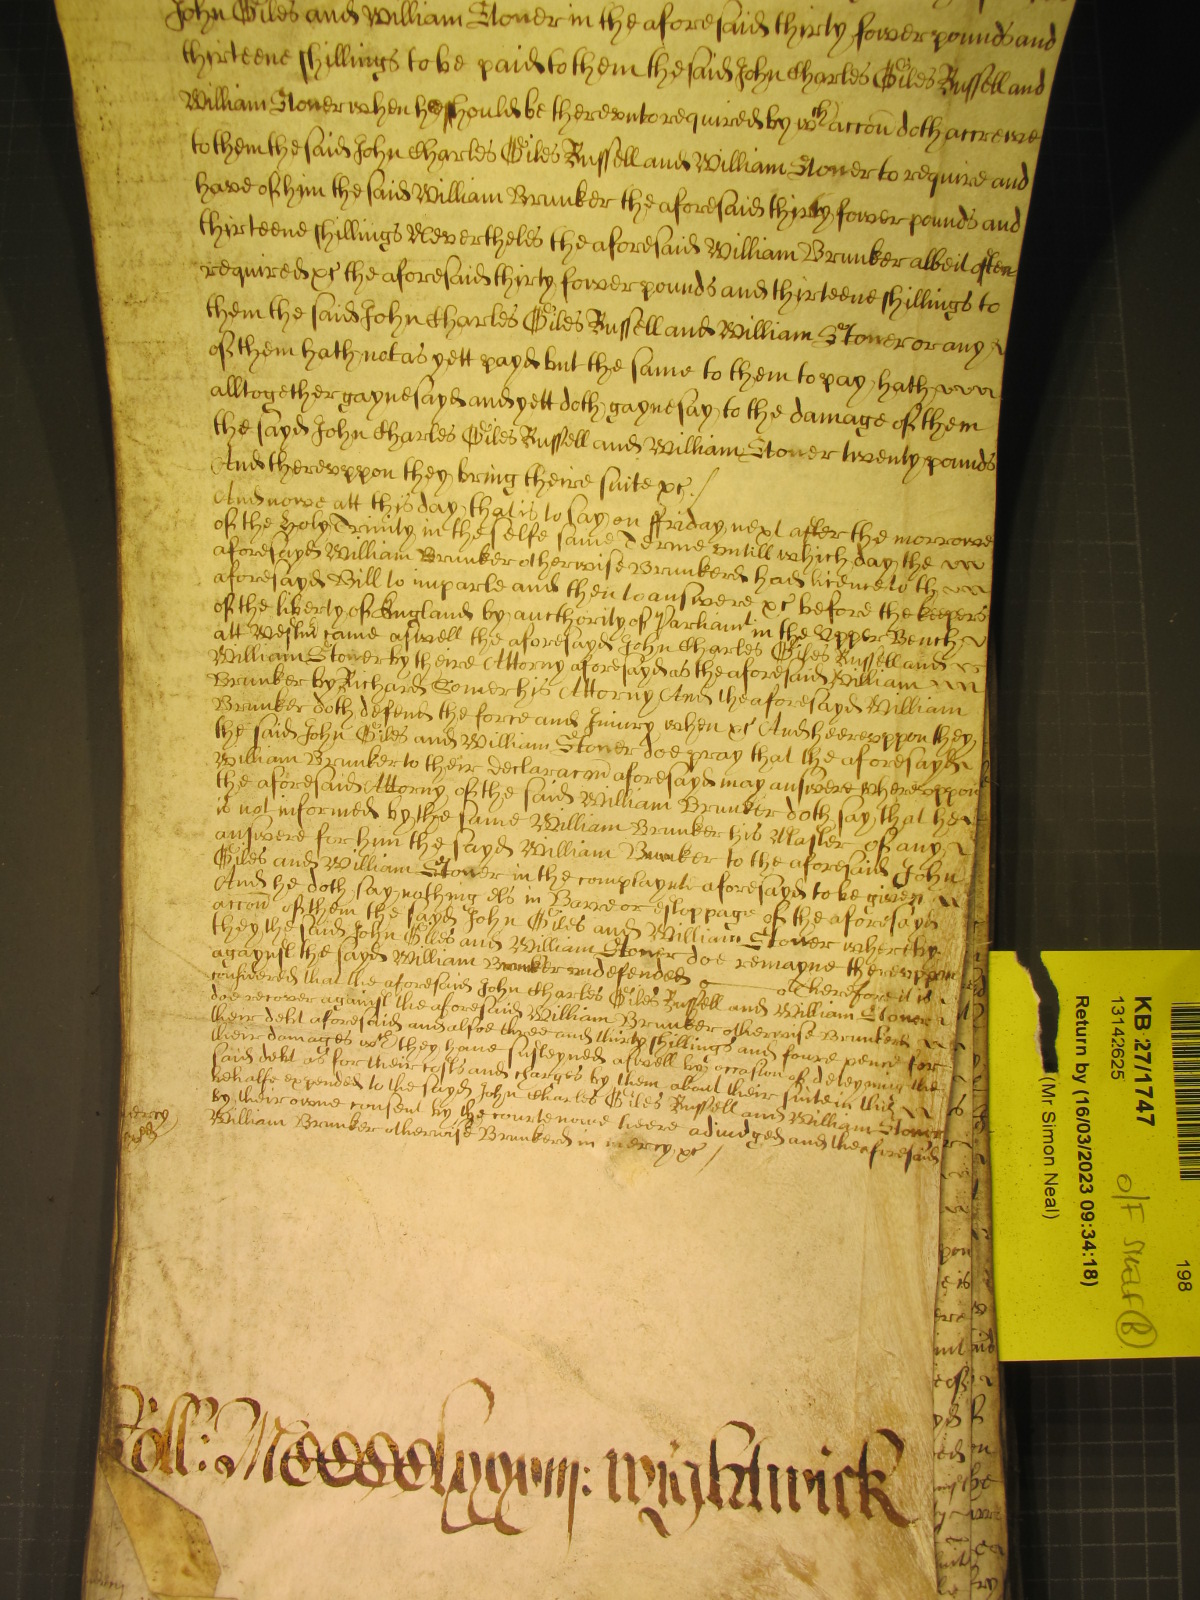 John Giles and William Stoner in the aforesaid thirty fower pounds and
thirteene shillings to be paid to them the said John Charles Giles Russell and
William Stoner when he should be therevnto required by wch accon doth accrewe
to them the said John Charles Giles Russell and William Stoner to require and
have of him the said William Brunker the aforesaid thirty fower pounds and
thirteene shillings Nevertheles the aforesaid William Brunker albeit often
required &c the aforesaid thirty fower pounds and thirteene shillings to
them the said John Charles Giles Russell and William Stoner or any
of them hath not as yett payd but the same to them to pay hath
alltogether gaynesayd and yett doth gaynesay to the damage of them
the sayd John Charles Giles Russell and William Stoner twenty pounds
And therevppon they bring theire suite &c /
And nowe att this day that is to say on ffriday next after the morrowe
of the Holy Trinity in the selfe same Terme vntill which day the
aforesayd William Brunker otherwise Brunkerd had licence to th
aforesayd Bill to imparle and then to answere &c before the keepers
of the liberty of England by aucthority of Parliamt in the Vpper Bench
att Westmr came aswell the aforesayd John Charles Giles Russell and
William Stoner by theire Attorny aforesayd as the aforesaid William
Brunker by Richard Somer his Attorny And the aforesayd William
Brunker doth defend the force and Iniury when &c And heerevppon they
the said John Giles and William Stoner doe pray that the aforesayd
William Brunker to their declaracon aforesayd may answere wherevppon
the aforesaid Attorny of the said William Brunker doth say that he
is not informed by the same William Brunker his Master of any
answere for him the sayd William Brunker to the aforesaid John
Giles and William Stoner in the complaynte aforesayd to be given
And he doth say nothing els in Barre or estoppage of the aforesayd
accon of them the sayd John Giles and William Stoner whereby
they the said John Giles and William Stoner doe remayne therevppon
agaynst the sayd William Brunker vndefended Therefore it is
considered that the aforesaid John Charles Giles Russell and William Stoner
doe recover against the aforesaid William Brunker otherwise Brunkerd
their debt aforesaid and alsoe three and thirty shillings and foure pence for
their damages wch they have susteyned aswell by occasion of deteyning the
said debt as for their costs and charges by them about their suite in this
behalfe expended to the sayd John Charles Giles Russell and William Stoner
by their owne consent by the courte nowe heere adiudged and the aforesaid
William Brunker otherwise Brunkerd in mercy &c /
mercy
Roll: MCCCClxxxviij: Wightwick
KB 27/1747
13142625
Return by (16/03/2023 09:34:18)
(Mr Simon Neal)
198